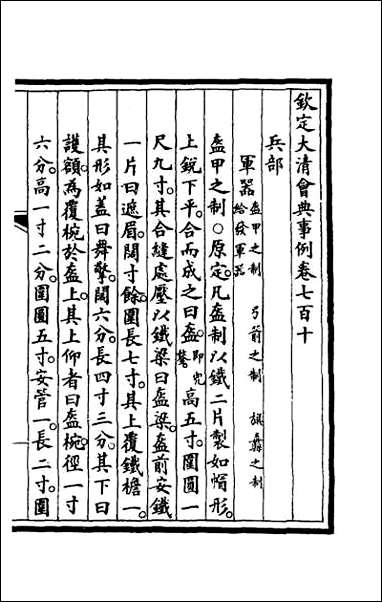 欽定大清會典事例卷七百十
兵部
軍器 盔甲之制 弓箭之制 旗纛之制
給發軍器
盔甲之制○原定。凡盔制以鐵二片製如帽形。
上銳下平。合而成之曰盔。即兠鍪高五寸。圍圓一
尺九寸。其合縫處壓以鐵梁曰盔梁。盔前安鐵
一片曰遮眉。闊寸餘。圍長七寸。其上覆鐵檐一。
其形如蓋曰舞擎。闊六分。長四寸三分。其下曰
護額。為覆椀於盔上。其上仰者曰盔椀。徑一寸
六分。高一寸二分。圍圓五寸。安管一。長二寸。圍